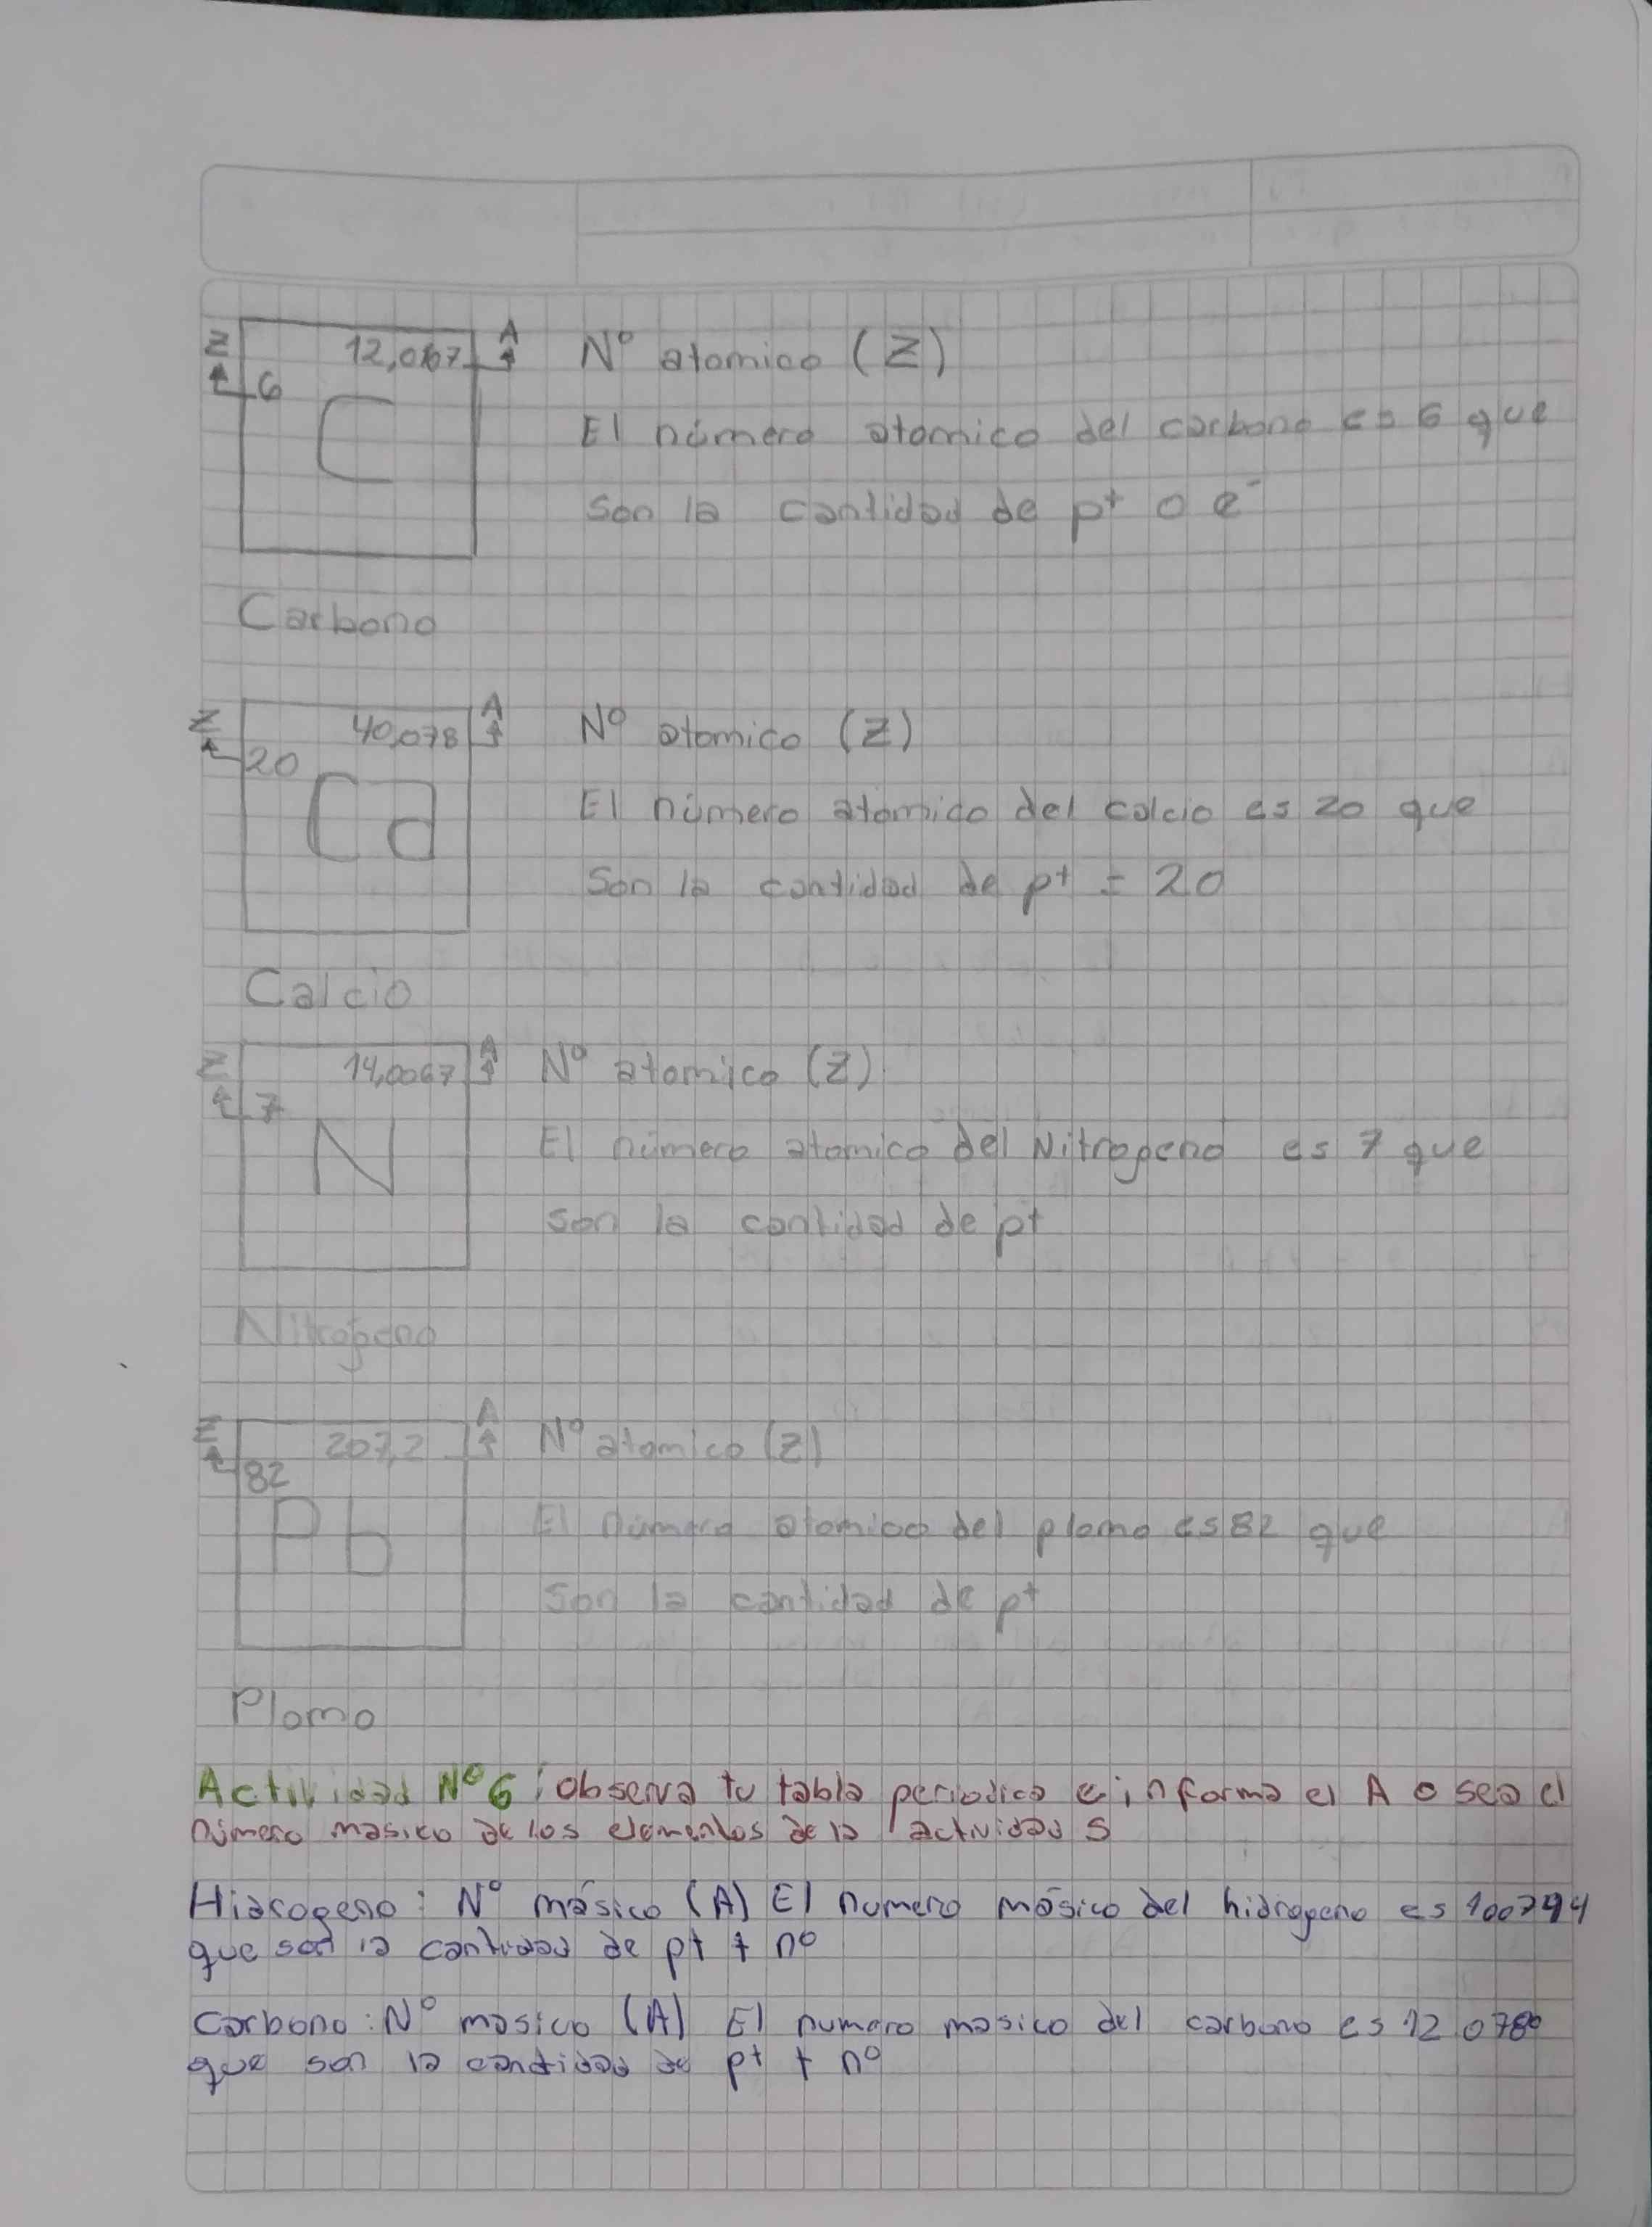 Z 12,0167 A N° atomico (Z)
6
C
El número atomico del carbono es 6 que
son la cantidad de p+ o e-
Carbono
Z 40,078 A N° atomico (Z)
20
Ca
El número atomico del calcio es 20 que
Son la cantidad de p+ = 20
Calcio
Z 14,0067 A N° atomico (Z)
7
N
El número atomico del Nitrogeno es 7 que
son la cantidad de p+
Nitrogeno
Z 207,2 A N° atomico (Z)
82
Pb
El número atomico del plomo es 82 que
Son la cantidad de p+
Plomo
Actividad N°6: observa tu tabla periodica e informa el A o sea el
número masico de los elementos de la actividad 5
Hidrogeno: N° másico (A) El numero másico del hidrogeno es 100794
que son la cantidad de p+ + n°
Carbono: N° masico (A) El numero masico del carbono es 12 078°
que son la cantidad de p+ + n°